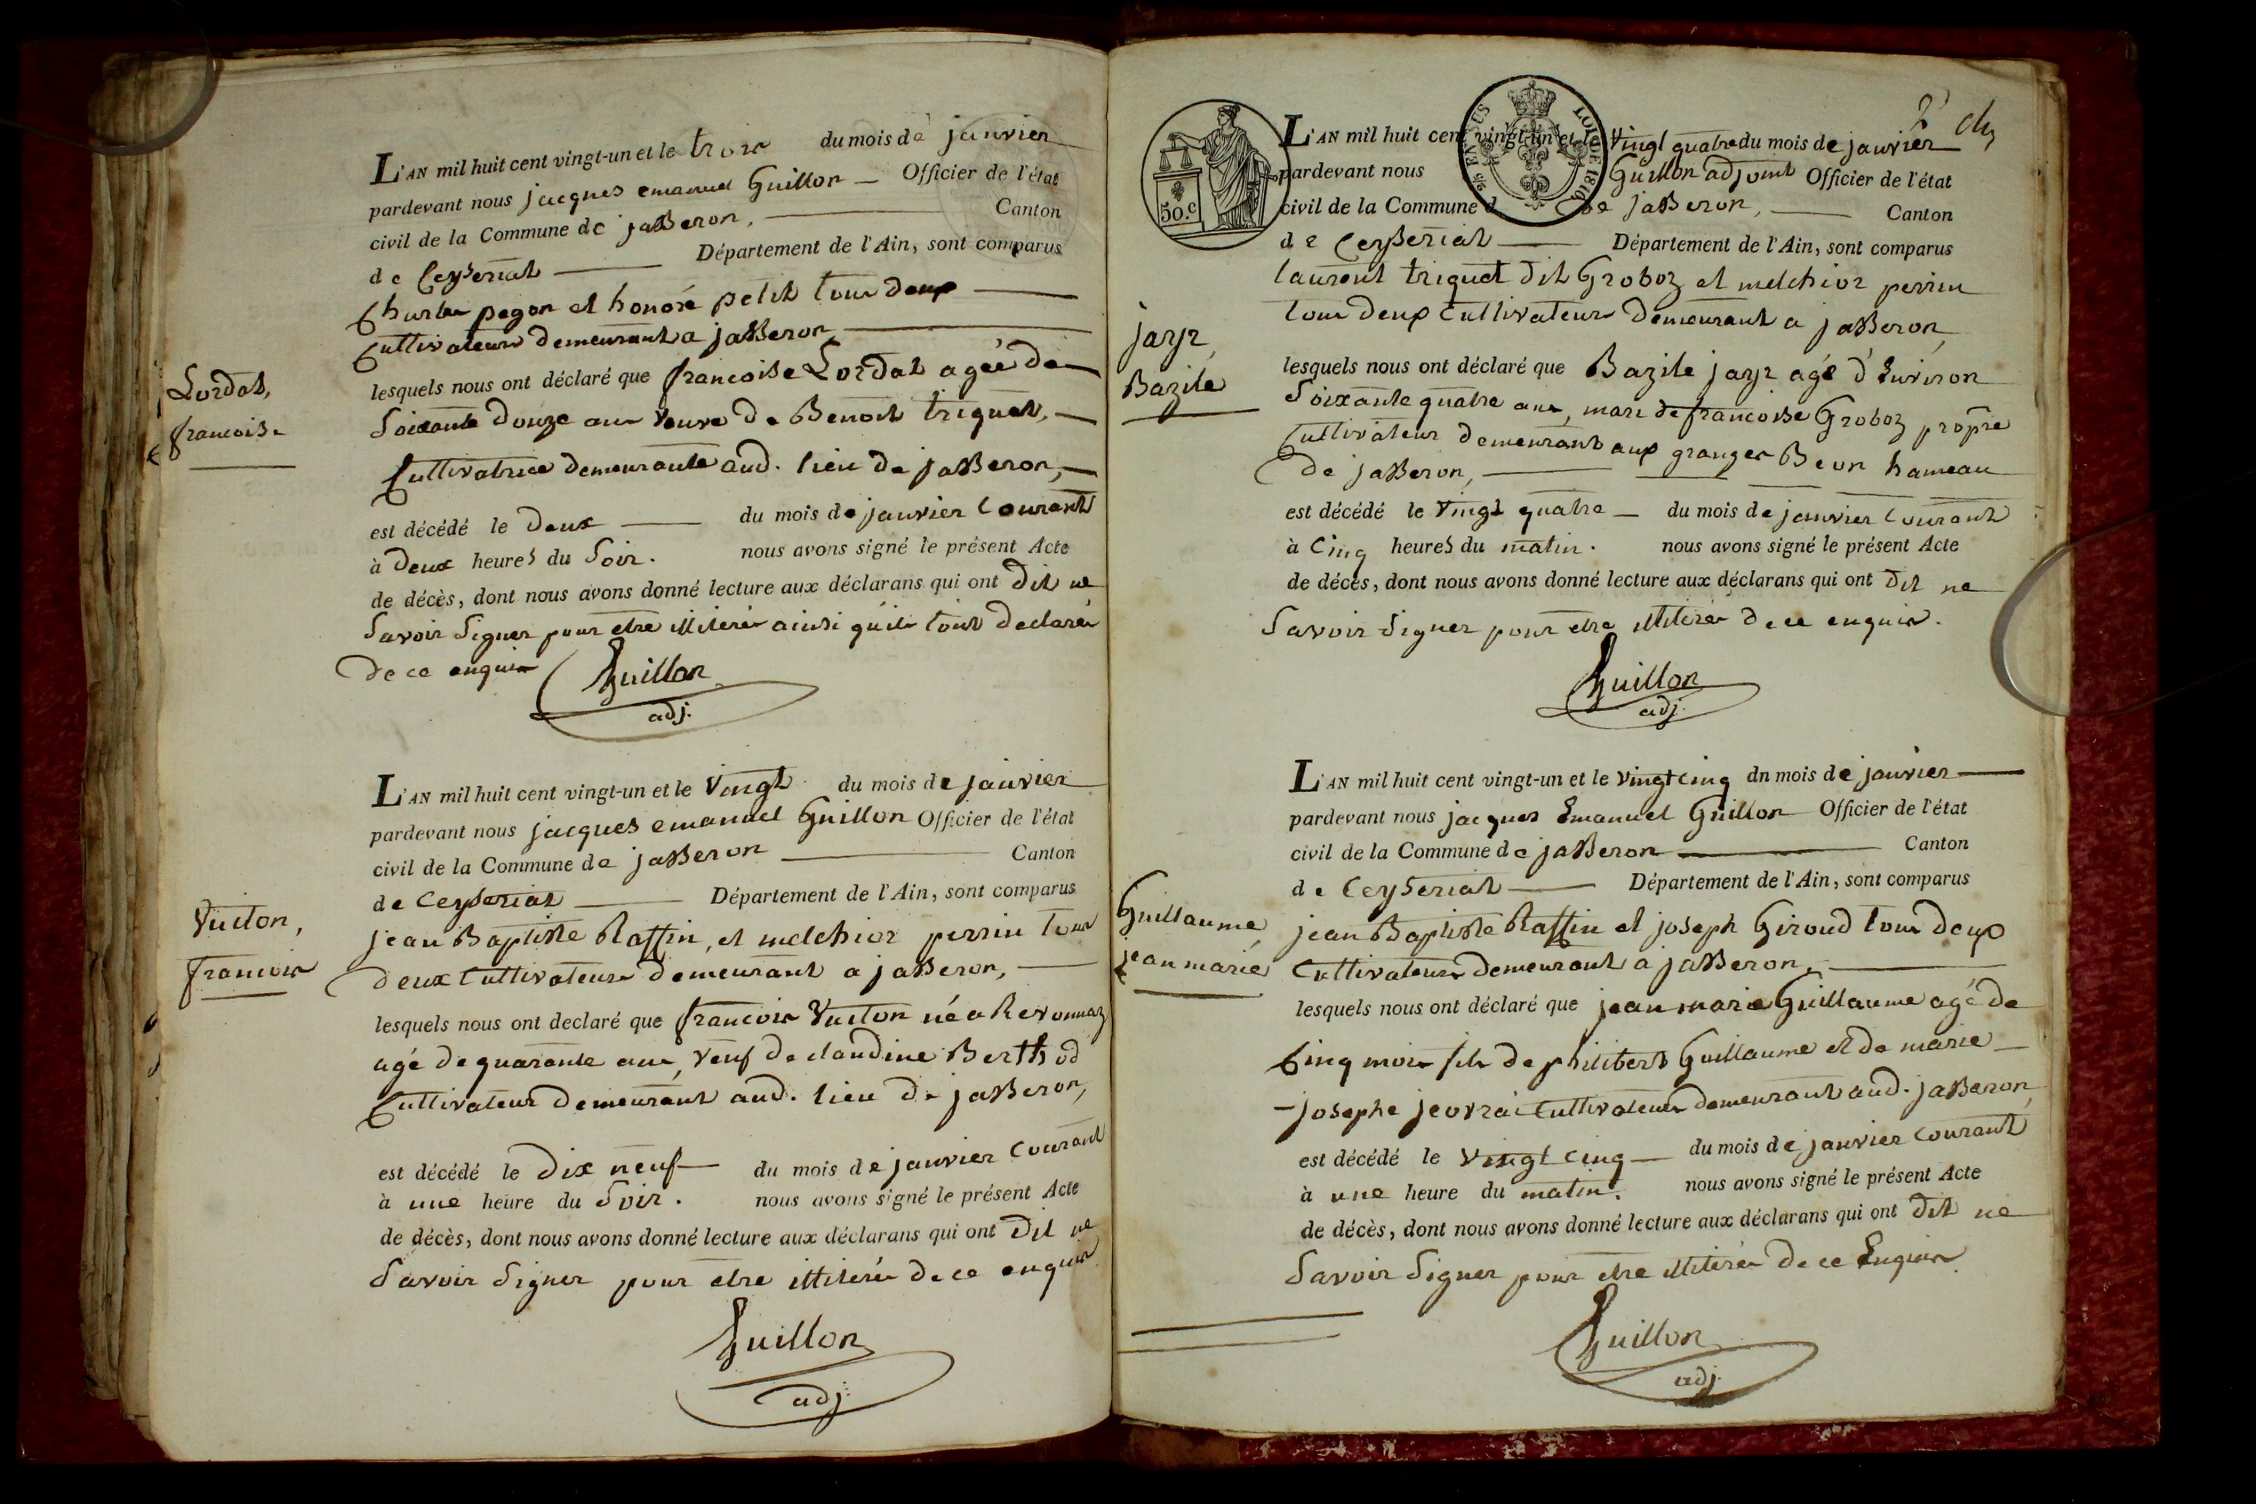 L'AN mil huit cent vingt-un et le trois du mois de janvier
pardevant nous jacques emanuel Guillon — Officier de l'état
civil de la Commune de jasseron, Canton
de Ceyseriat Département de l'Ain, sont comparus
Charles pegon et honoré petit tous deux
Cultivateurs demeurant a jasseron
Lordat,
francoise
lesquels nous ont déclaré que francoise Lordat agée de
Soixante douze ans Veuve de Benoit triquet,
Cultivatrice demeurante aud. lieu de jasseron,
est décédé le deux du mois de janvier Courant
à deux heures du Soir. nous avons signé le présent Acte
de décès, dont nous avons donné lecture aux déclarans qui ont dit ne
Savoir Signer pour etre illiterés ainsi qu'ils l'ont declarés
de ce enquis
Guillon
adj.
L'AN mil huit cent vingt-un et le Vingt du mois de janvier
pardevant nous jacques emanuel Guillon Officier de l'état
civil de la Commune de jasseron Canton
de Ceyseriat Département de l'Ain, sont comparus
Vuiton,
francois
jean Baptiste Raffin, et melchior perrin tous
deux Cultivateurs demeurant a jasseron,
lesquels nous ont declaré que francois Vuiton né a Revonnaz
agé de quarante ans, Veuf de claudine Berthod
Cultivateur demeurant aud. lieu de jasseron,
est décédé le dix neuf du mois de janvier Courant
à une heure du Soir. nous avons signé le présent Acte
de décès, dont nous avons donné lecture aux déclarans qui ont dit ne
Savoir Signer pour etre illiterés de ce enquis
Guillon
adj.
50.c
LOI DE 1816
L'AN mil huit cent vingt-un et le Vingt quatre du mois de janvier
pardevant nous Guillon adjoint Officier de l'état
civil de la Commune de jasseron, Canton
de Ceyseriat Département de l'Ain, sont comparus
laurent triquet dit Groboz et melchior perrin
tous deux Cultivateurs demeurant a jasseron,
jayr,
Bazile
lesquels nous ont déclaré que Bazile jayr agé d'Environ
Soixante quatre ans, mari de francoise Groboz propre
Cultivateur demeurant aux granges Beon hameau
de jasseron,
est décédé le Vingt quatre du mois de janvier Courant
à Cinq heures du matin. nous avons signé le présent Acte
de décès, dont nous avons donné lecture aux déclarans qui ont dit ne
Savoir Signer pour etre illiterés de ce enquis.
Guillon
adj.
L'AN mil huit cent vingt-un et le Vingt cinq dn mois de janvier
pardevant nous jacques Emanuel Guillon Officier de l'état
civil de la Commune de jasseron Canton
de Ceyseriat Département de l'Ain, sont comparus
Guillaume
jean marie
jean Baptiste Raffin et joseph Giroud tous deux
Cultivateurs demeurant a jasseron,
lesquels nous ont déclaré que jean marie Guillaume agé de
Cinq mois fils de philibert Guillaume et de marie
josephe jeovrai Cultivateurs demeurant aud. jasseron,
est décédé le Vingt cinq du mois de janvier Courant
à une heure du matin. nous avons signé le présent Acte
de décès, dont nous avons donné lecture aux déclarans qui ont dit ne
Savoir Signer pour etre illiterés de ce Enquis.
Guillon
adj.